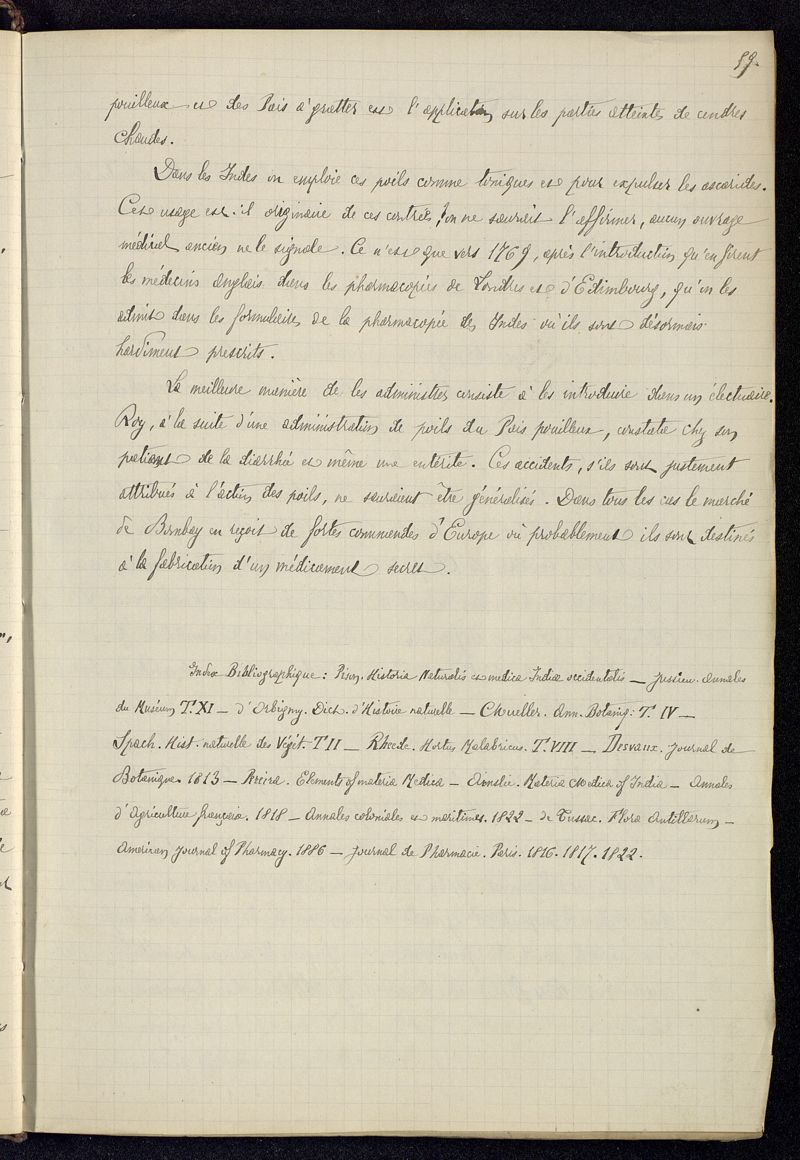 59.
pouilleux et des Pois à gratter est l'application sur les parties atteintes de cendres
chaudes.
Dans les Indes on emploie ces poils comme toniques et pour expulser les ascarides.
Cet usage est-il originaire de ces contrées, on ne saurait l'affirmer, aucun ouvrage
médical ancien ne le signale. Ce n'est que vers 1769, après l'introduction qu'en firent
les médecins anglais dans les pharmacopées de Londres et d'Edimbourg, qu'on les
admit dans les formulaires de la pharmacopée des Indes où ils sont désormais
hardiment prescrits.
La meilleure manière de les administrer consiste à les introduire dans un électuaire.
Roy, à la suite d'une administration de poils du Pois pouilleux, constate chez son
patient de la diarrhée et même une entérite. Ces accidents, s'ils sont justement
attribués à l'action des poils, ne sauraient être généralisés. Dans tous les cas le marché
de Bombay en reçoit de fortes commandes d'Europe où probablement ils sont destinés
à la fabrication d'un médicament secret.
Index Bibliographique: Pison. Historia Naturalis et medica Indiæ occidentalis — Jussieu. Annales
du Muséum T. XI — d'Orbigny. Dict. d'Histoire naturelle — Mueller. Ann. Botaniq: T. IV —
Spach. Hist. naturelle des Végét. T II — Rheede. Hortus Malabricus. T. VIII — Desvaux. Journal de
Botanique. 1813 — Pereira. Elements of materia Medica — Ainslie. Materia Medica of India — Annales
d'Agriculture française. 1818 — Annales coloniales et maritimes. 1822 — de Tussac. Flora Antillarum —
American Journal of Pharmacy. 1886 — Journal de Pharmacie. Paris. 1816. 1817. 1822.